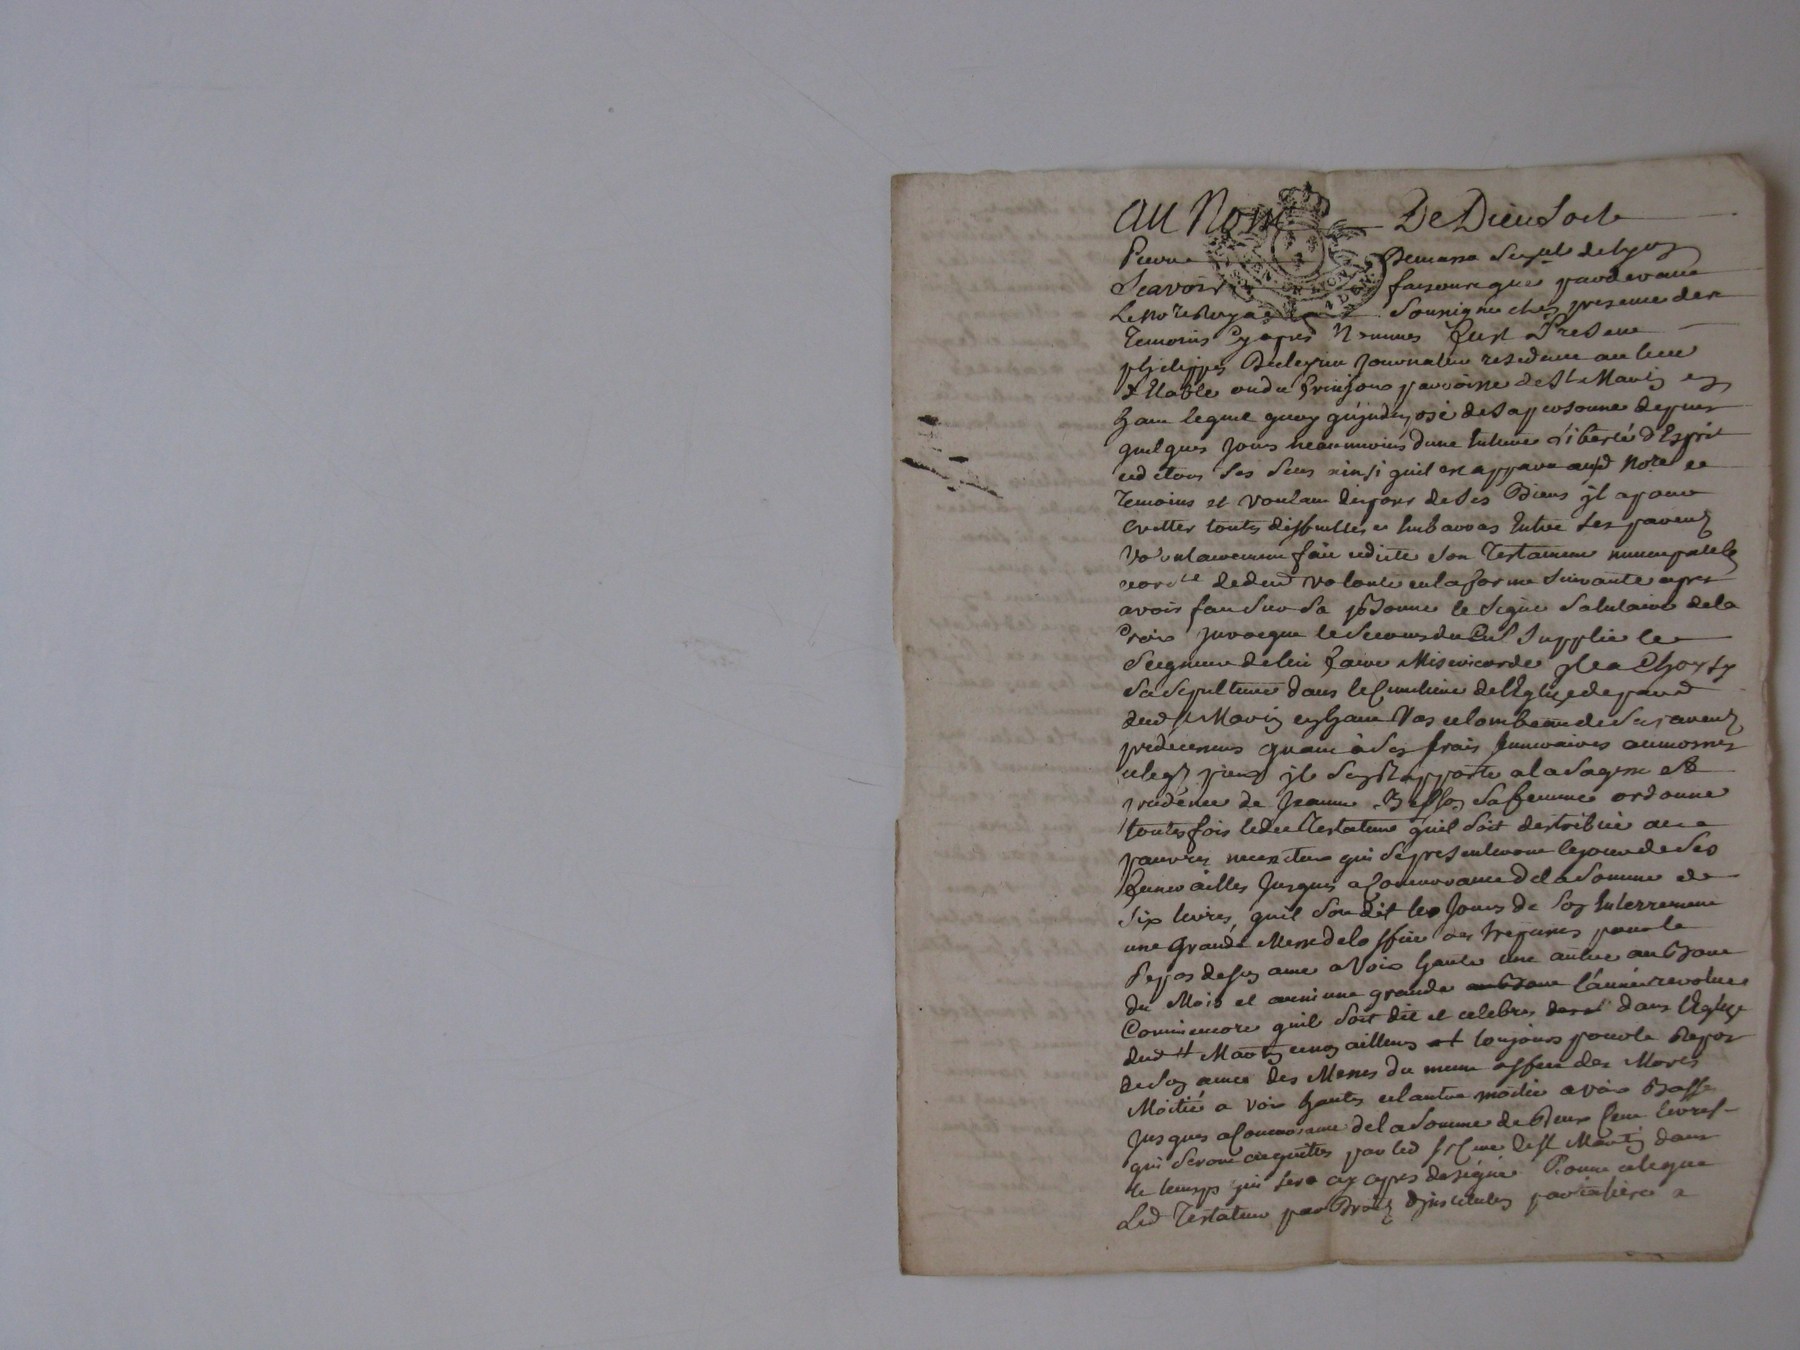 au Nom De Dieu Soit
Pierre
Scavoir faisons que pardevant
Le No.re Royal Soussigné et es presence des
Temoins Cy apres Nommes fust Présent
philippe journalier residant au lieu
paroisse de St Martin en
haut lequel quoy qu'jndisposé de Sa personne depuis
quelques jours neanmoins d'une Entiere Liberté d'Esprit
et de tous Ses Sens ainsi quil est apparu aud No.re et
Temoins et voulant disposer de Ses Biens jl a pour
Eviter toutes difficultes et Embarras Entre Ses parents
Volontairement fait et dicté Son Testament nuncupatif
de der.e volonté en la forme Suivante apres
avoir fait Sur Sa p.Sonne le Signe Salutaire de la
Croix jnvoqué le Secours du Ciel Supplié le
Seigneur de lui faire Misericorde jl a Choisy
Sa Sepulture dans le Cimetiere de l'Eglize
dud St Martin en haut Vas et tombeau de Ses parents
predecesseurs quant à Ses frais funeraires aumosnes
et legs pieux jl S'en Rapporte a la Sagesse et
prudence de jeanne Sa femme ordonne
toutesfois ledit Testateur quil Soit distribué aux
pauvres necessiteux qui Se presenteront le jour de Ses
funerailles jusques a Concurrance de la Somme de
Six livres, quil Soit dit les jours de Son Enterrement
une Grande Messe de l'office des Trepassés pour le
Repos de Son ame a Voix haute une autre au Bout
du Mois et aussi une grande au Bout l'année revolue
Comm'encore quil Soit dit et celebré dans l'Eglize
dud St Martin et non ailleurs et toujours pour le Repos
de Son ame des Messes du meme office des Morts
Moitié a voix hautes et l'autre moitié a voix Basse
jusques a Concurrance de la Somme de Deux Cent Livres
qui Seront acquittés par led Sr Curé de St Martin dans
le temps qui Sera cy apres designé Donne et legue
Led Testateur par Droit d'jnstitution particuliere a